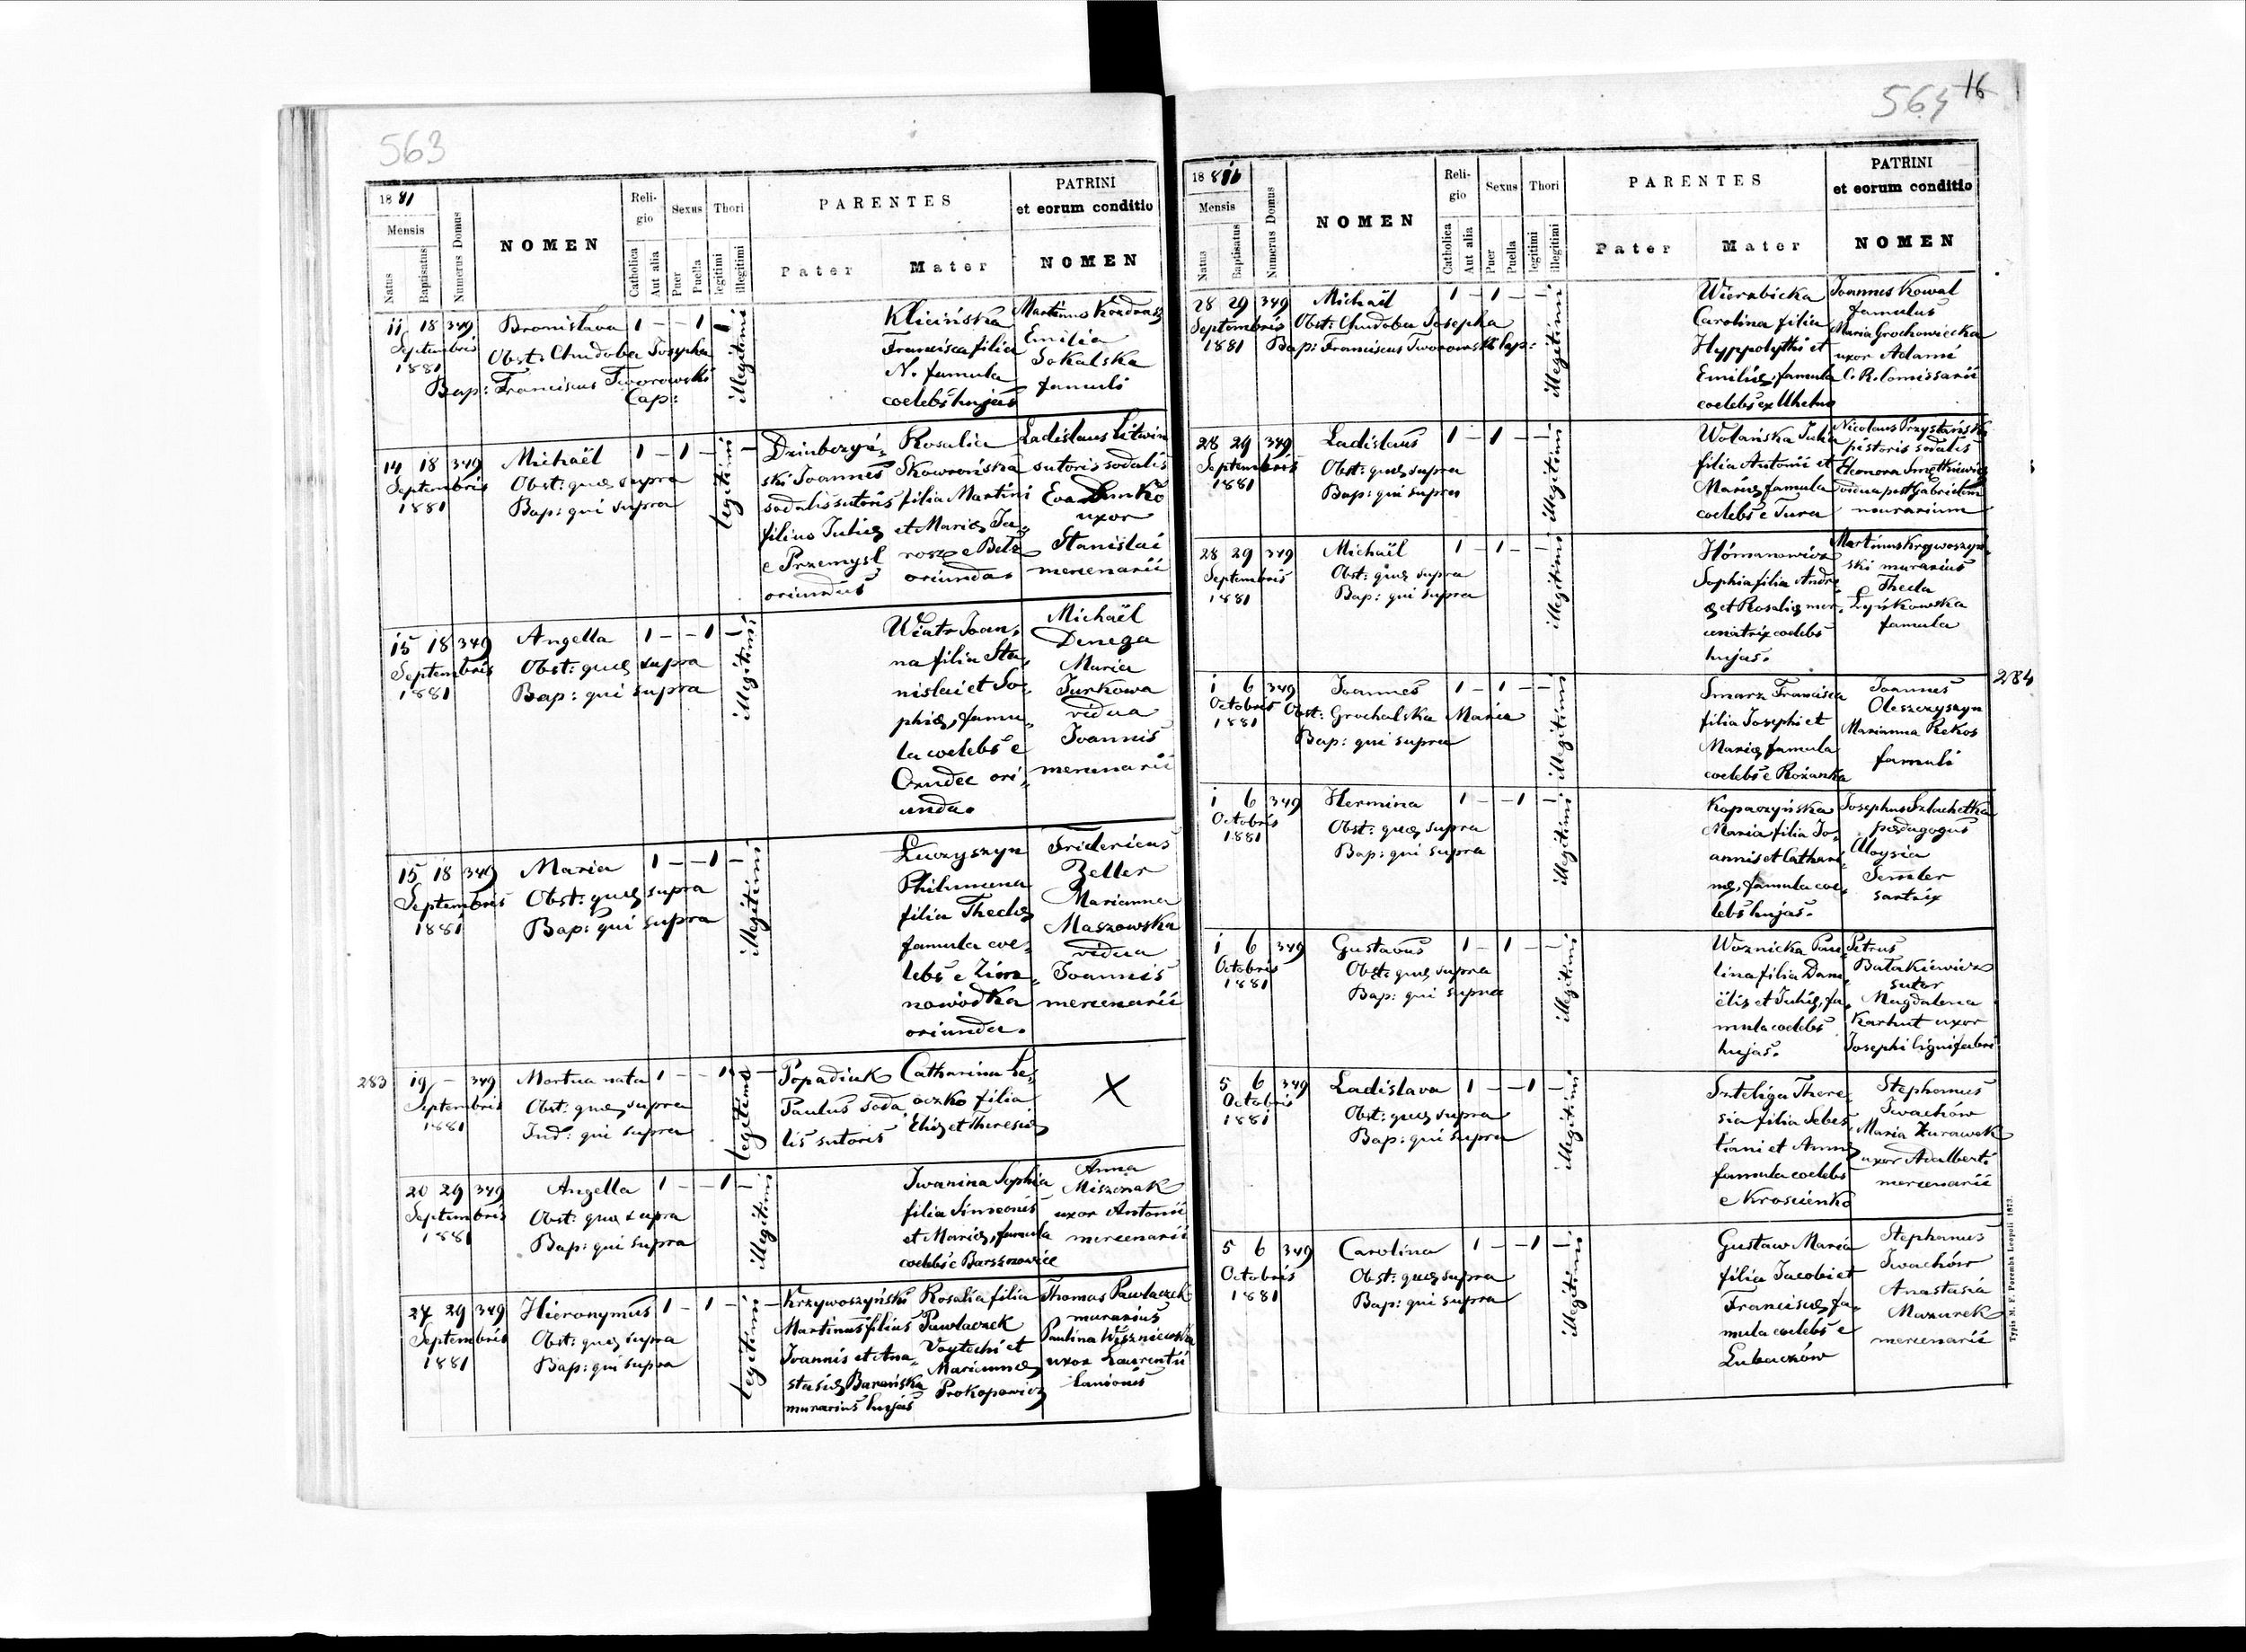 563
1881
Mensis
Natus
Baptisatus
Numerus Domus
NOMEN
Religio
Catholica
Aut alia
Sexus
Puer
Puella
Thori
legitimi
illegitimi
PARENTES
Pater
Mater
PATRINI
et eorum conditio
NOMEN
11 18 349 Bronislava 1 – – 1 1
Septembris
1881
Obst: Chudoba Josepha
Bap: Franciscus Tworowski
Cap:
illegitimi
Klicińska
Francisca filia
N. famula
coelebs hujas
Martinus
Emilia
Sokalska
famuli
14 18 349 Michaël 1 – 1 – –
Septembris
1881
Obst: quæ supra
Bap: qui supra
legitimi
ski Joannes
sodalis sutoris
filius Juliæ
e Przemysl
oriundus
Rosalia
Skowrońska
filia Martini
et Mariæ Ja-
rosz e Betz
oriunda
Ladislaus Litwin
sutoris sodalis
Eva Dunko
uxor
Stanislai
mercenarii
15 18 349 Angella 1 – – 1 –
Septembris
1881
Obst: quæ supra
Bap: qui supra
illegitimi
Wiatr Joan-
na filia Sta-
nislai et So-
phiæ, famu-
la coelebs e
ori-
unda.
Michaël
Denega
Maria
Jurkowa
vidua
Joannis
mercenarii
15 18 349 Maria 1 – – 1 –
Septembris
1881
Obst: quæ supra
Bap: qui supra
illegitimi
Luczyszyn
Philumena
filia Theclæ
famula coe-
lebs e Zim-
nawodka
oriunda.
Fridericus
Zeller
Marianna
Maszowska
vidua
Joannis
mercenarii
283
19 – 349 Mortua nata 1 – – 1 –
Septembris
1881
Obst: quæ supra
Ind: qui supra
legitima
Popadiuk
Paulus soda-
lis sutoris
Catharina Le-
oczko filia
Eliæ et Theresiæ
X
20 29 349 Angella 1 – – 1 –
Septembris
1881
Obst: quæ supra
Bap: qui supra
illegitimi
Iwanina Sophia
filia Simeonis
et Mariæ, famula
coelebs e Barszczowice
Anna
Miszczak
uxor Antonii
mercenarii
27 29 349 Hieronymus 1 – 1 – –
Septembris
1881
Obst: quæ supra
Bap: qui supra
legitimi
Krzywoszyński
Martinus filius
Joannis et Ana-
stasiæ Barańska
murarius hujas
Rosalia filia
Pawlaczek
Voytechi et
Mariannæ
Prokopowicz
Thomas Pawlaczek
murarius
Paulina Wiszniewska
uxor Laurentii
Lanionis
564
16
1881
Mensis
Natus
Baptisatus
Numerus Domus
NOMEN
Religio
Catholica
Aut alia
Sexus
Puer
Puella
Thori
legitimi
illegitimi
PARENTES
Pater
Mater
PATRINI
et eorum conditio
NOMEN
28 29 349 Michaël 1 – 1 – –
Septembris
1881
Obst: Chudoba Josepha
Bap: Franciscus Tworowski Cap:
illegitimi
Wierzbicka
Carolina filia
Hyppolythi et
Emiliæ, famula
coelebs ex Uhelna
Joannes Kowal
famulus
Maria Grochowiecka
uxor Adami
C. R. Comissarii
28 29 349 Ladislaus 1 – 1 – –
Septembris
1881
Obst: quæ supra
Bap: qui supra
illegitimi
Wolańska Julia
filia Antonii et
Mariæ famula
coelebs e Tura
Nicolaus Przystański
pistoris sodalis
Eleonora Smętkiewicz
vidua post Gabrielem
murarium
28 29 349 Michaël 1 – 1 – –
Septembris
1881
Obst: quæ supra
Bap: qui supra
illegitimi
Hómanowicz
Sophia filia Andre-
æ et Rosaliæ mer-
cenatrix coelebs
hujas.
Martinus Krzywoszyń-
ski murarius
Thecla
famula
284
1 6 349 Joannes 1 – 1 – –
Octobris
1881
Obst: Grochalska Maria
Bap: qui supra
illegitimi
Smarz Francisca
filia Josephi et
Mariæ famula
coelebs e Rożanka
Joannes
Oleszczyszyn
Marianna Rekos
famuli
1 6 349 Hermina 1 – – 1 –
Octobris
1881
Obst: quæ supra
Bap: qui supra
illegitimi
Kopaczyńska
Maria filia Jo-
annis et Cathari-
næ, famula coe-
lebs hujas.
Josephus Szlachetka
pædagogus
Aloysia
Semler
sartrix
1 6 349 Gustavus 1 – 1 – –
Octobris
1881
Obst: quæ supra
Bap: qui supra
illegitimi
Woznicka Pau-
lina filia Dani-
ëlis et Juliæ, fa-
mula coelebs
hujas.
Petrus
Batakiewicz
sutor
Magdalena
Karhut uxor
Josephi lignifabri
5 6 349 Ladislava 1 – – 1 –
Octobris
1881
Obst: quæ supra
Bap: qui supra
illegitimi
Szteliga There-
sia filia Sebas-
tiani et Annæ
famula coelebs
e Krościenko
Stephanus
Iwachów
Maria Żurawek
uxor Adalberti
mercenarii
5 6 349 Carolina 1 – – 1 –
Octobris
1881
Obst: quæ supra
Bap: qui supra
illegitimi
Gustaw Maria
filia Jacobi et
Franciscæ, fa-
mula coelebs e
Lubaczów
Stephanus
Iwachów
Anastasia
Mazurek
mercenarii
Typis M. F. Poremba Leopoli 1873.